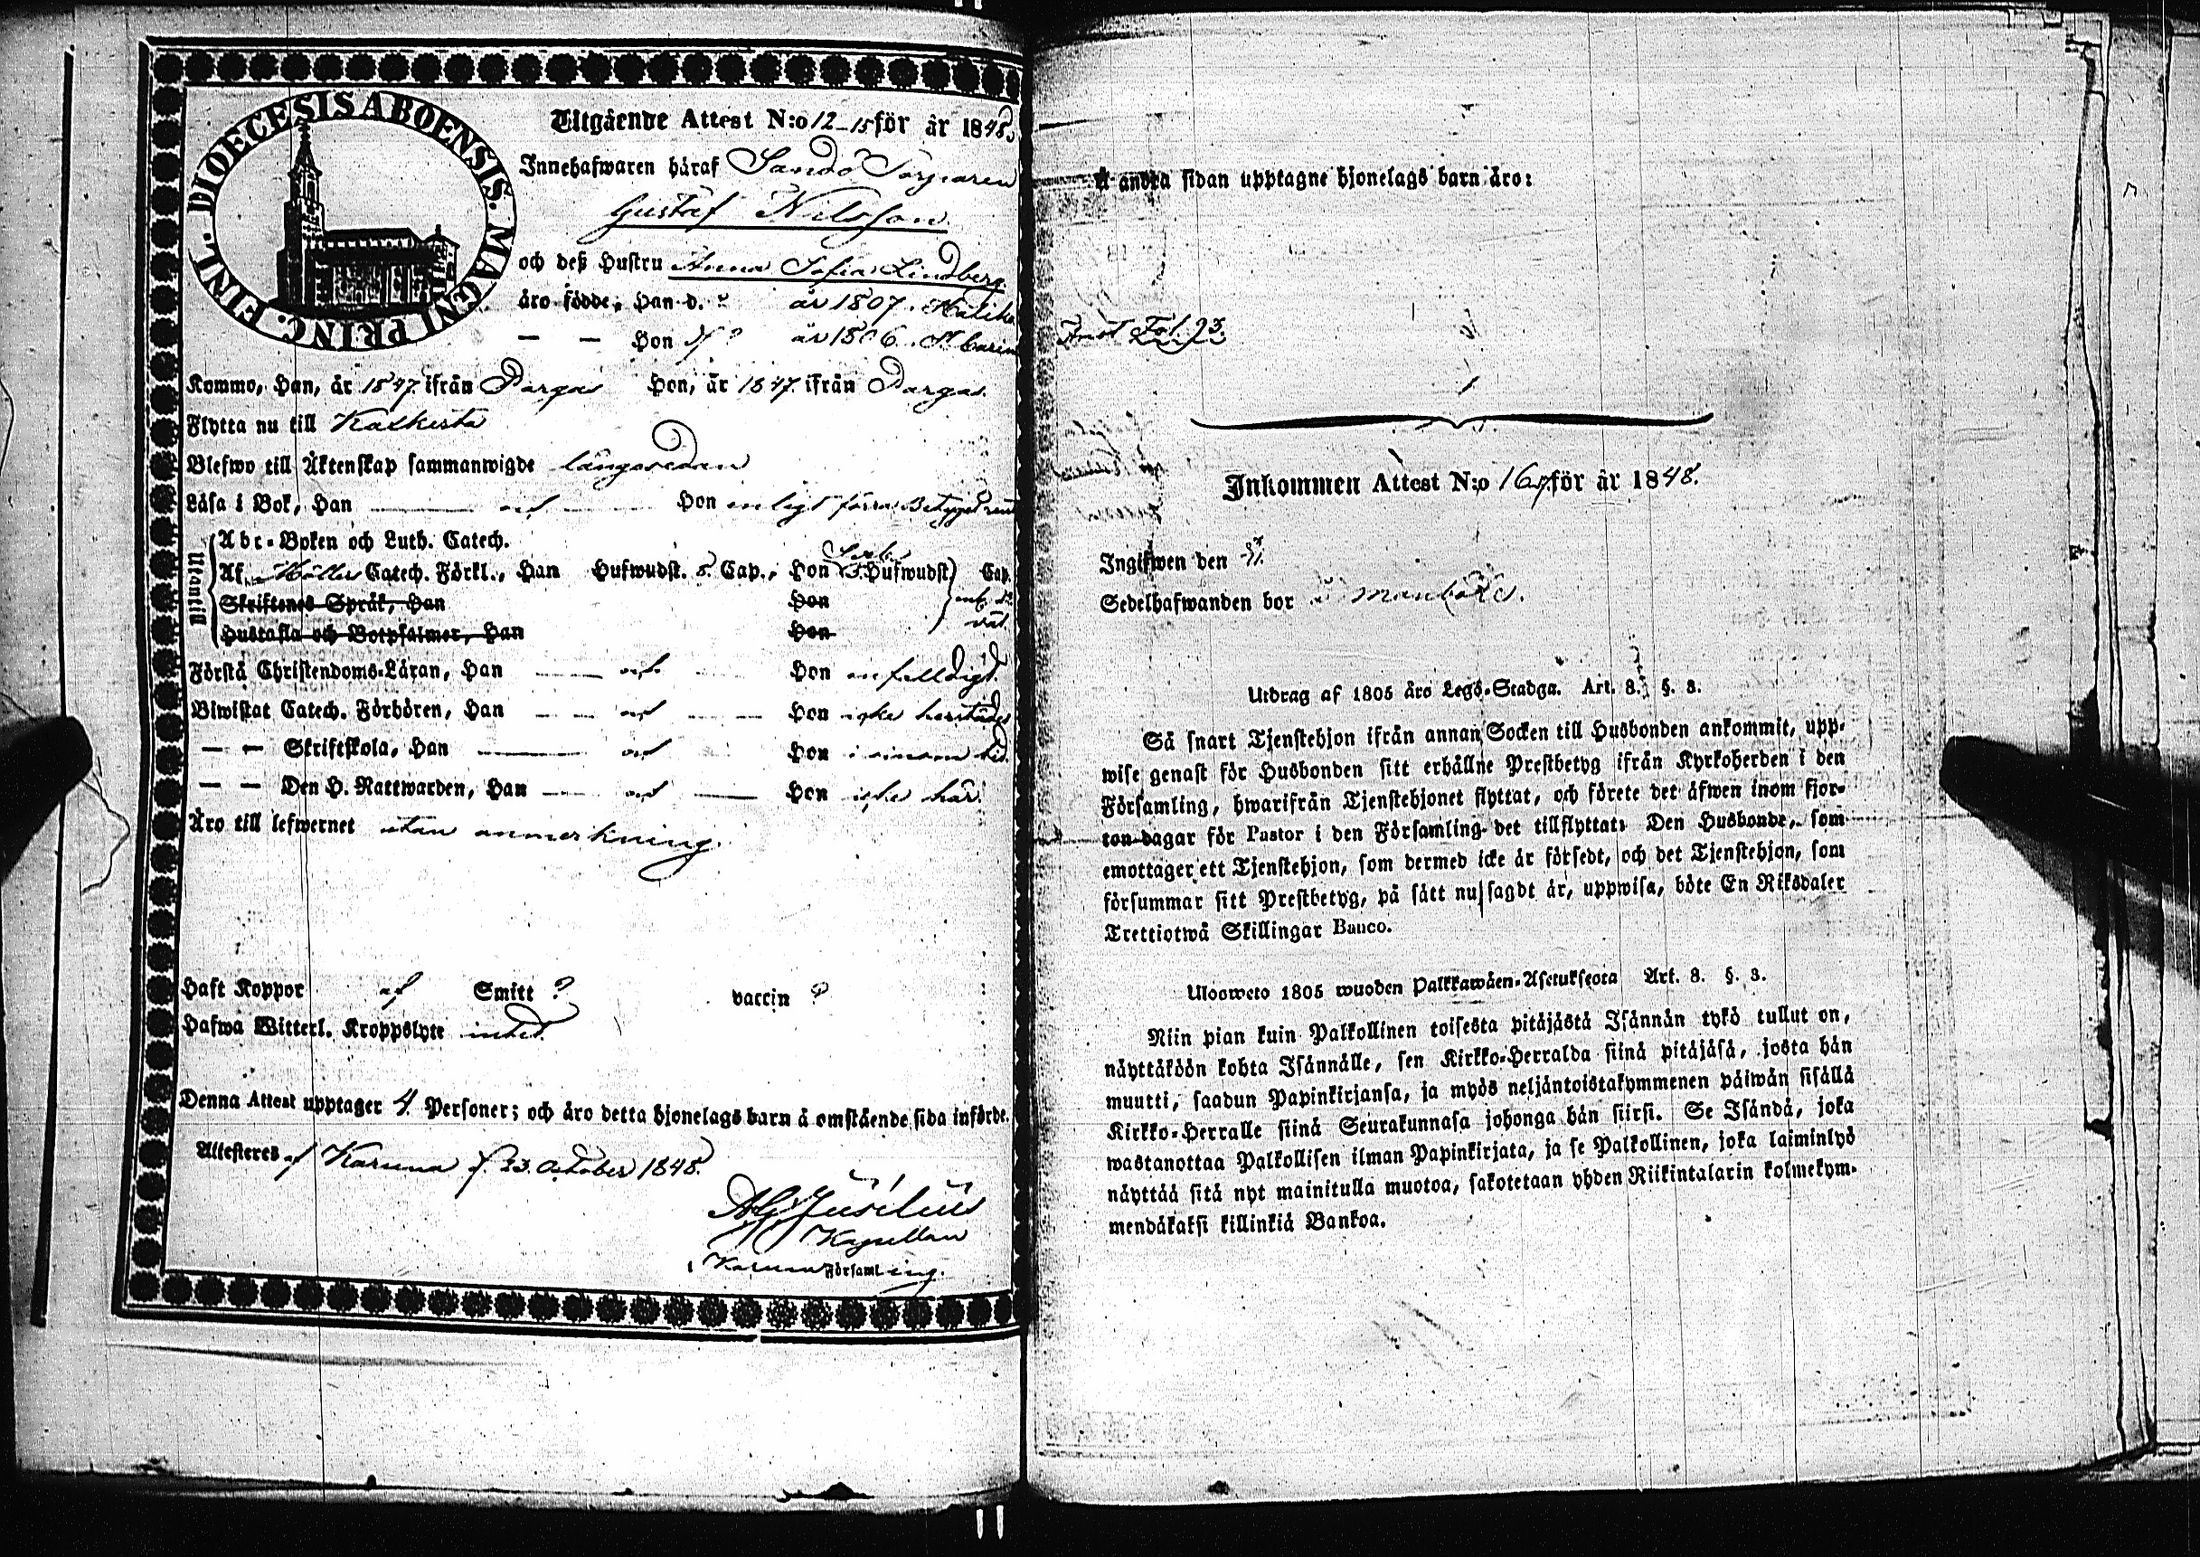 DIOECESIS ABOENSIS. MAGNI PRINC. FINL.
Utgående Attest N:o 12–15 för år 1848.
Innehafwaren häraf Sandö Torparen
Gustaf Nilsson
och deß Hustru Anna Sofia Lindberg
äro födde, Han d. ? år 1807.
— — Hon d. ? år 1806. St Carin
Kommo, Han, år 1847. ifrån Pargas Hon, år 1847. ifrån Pargas.
Flytta nu till
Blefwo till Äktenskap sammanwigde långesedan
Läsa i Bok, Han och Hon enligt förra Betyget rent
Utantill
Abc-Boken och Luth. Catech.
Af Möllers Catech. Förkl., Han Hufwudst. 5. Cap., Hon Hufwudst. Cap.
Skriftenes Språk, Han Hon
Hustafla och Botpsalmer, Han Hon
Förstå Christendoms-Läran, Han — och — Hon enfaldigt.
Biwistat Catech. Förhören, Han — och — Hon icke härstädes
— — Skriftskola, Han — och Hon i sinom tid.
— — Den H. Nattwarden, Han — och — Hon icke här.
Äro till lefwernet utan anmärkning.
Haft Koppor Smitt ? vaccin ?
Hafwa Witterl. Kroppslyte intet.
Denna Attest upptager 4. Personer; och äro detta hjonelags barn å omstående sida införde.
Attesteras af Karuna d. 23. October 1848.
Kapellan
i Karuna Församling.
Å andra sidan upptagne hjonelags barn äro:
Fol. 93.
Inkommen Attest N:o för år 1848.
Ingifwen den
Sedelhafwanden bor å
Utdrag af 1805 års Legs-Stadga. Art. 8. §. 3.
Så snart Tjenstehjon ifrån annan Socken till Husbonden ankommit, upp-
wise genast för Husbonden sitt erhållne Prestbetyg ifrån Kyrkoherden i den
Församling, hwarifrån Tjenstehjonet flyttat, och förete det äfwen inom fjor-
ton dagar för Pastor i den Församling det tillflyttat. Den Husbonde, som
emottager ett Tjenstehjon, som dermed icke är försedt, och det Tjenstehjon, som
försummar sitt Prestbetyg, på sätt nu sagdt är, uppwisa, böte En Riksdaler
Trettiotwå Skillingar Banco.
Ulosweto 1805 wuoden Palkkawäen-Asetuksesta Art. 8. §. 3.
Niin pian kuin Palkollinen toisesta pitäjästä Isännän tykö tullut on,
näyttäköön kohta Isännälle, sen Kirkko-Herralda siinä pitäjäsä, josta hän
muutti, saadun Papinkirjansa, ja myös neljäntoistakymmenen päiwän sisällä
Kirkko-Herralle siinä Seurakunnasa johonga hän siirsi. Se Isändä, joka
wastanottaa Palkollisen ilman Papinkirjata, ja se Palkollinen, joka laiminlyö
näyttää sitä nyt mainitulla muotoa, sakotetaan yhden Riikintalarin kolmekym-
mendäkaksi killinkiä Bankoa.